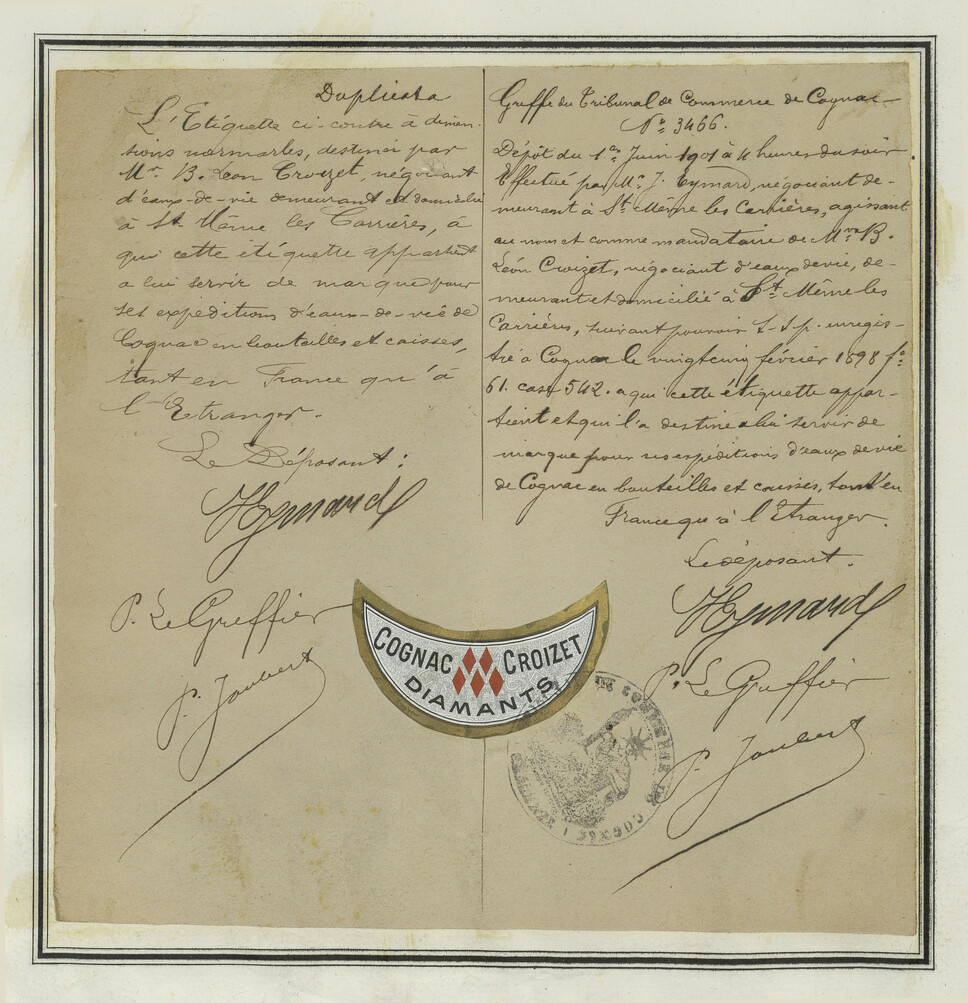 Duplicata
L'Etiquette ci-contre à dimen-
sions normales, destinée par
Mr. B. Léon Croizet, négociant
d'eaux-de-vie demeurant et domicilié
à St Même les Carrières, à
qui cette étiquette appartient
a lui servir de marque pour
ses expéditions d'eaux-de-vie de
Cognac en bouteilles et caisses,
tant en France qu'à
l'Etranger.
Le Déposant:
JEymard
P. Le Greffier
P. Joubert
Greffe du Tribunal de Commerce de Cognac
No 3466.
Dépôt du 1er Juin 1901 à 4 heures du soir.
Effectué par Mr J. Eymard, négociant de-
meurant à St Même les Carrières, agissant
au nom et comme mandataire de Mr B.
Léon Croizet, négociant d'eaux de vie, de-
meurant et domicilié à St Même les
Carrières, suivant pouvoir s.s.p. enregis-
tré à Cognac le vingt cinq février 1898 fo
61. case 542. a qui cette étiquette appar-
tient et qui l'a destiné a lui servir de
marque pour ses expéditions d'eaux de vie
de Cognac en bouteilles et caisses, tant en
France qu'à l'Etranger.
Le déposant.
JEymard
P. Le Greffier
P. Joubert
COGNAC CROIZET
DIAMANTS
DE COMMERCE DE COGNAC